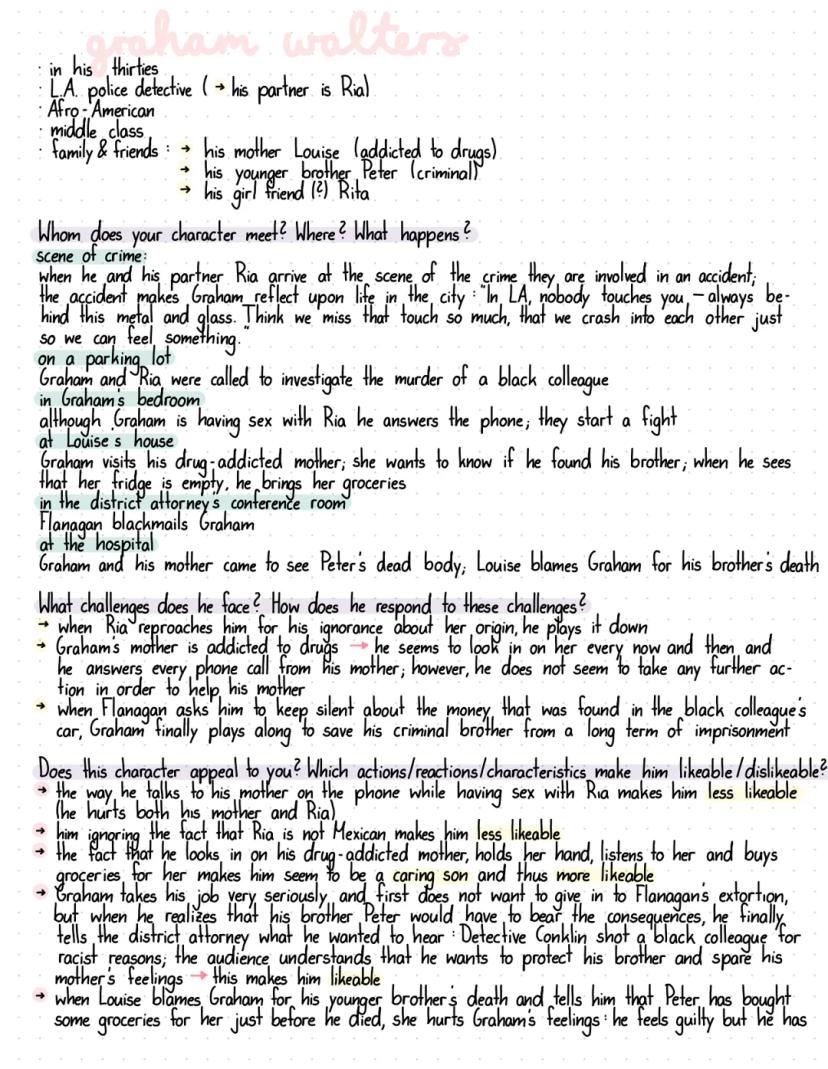 graham walters
· in his thirties
· L.A. police detective ( → his partner is Ria)
· Afro-American
· middle class
· family & friends : → his mother Louise (addicted to drugs)
→ his younger brother Peter (criminal)
→ his girl friend (?) Rita
Whom does your character meet? Where? What happens?
scene of crime:
when he and his partner Ria arrive at the scene of the crime they are involved in an accident;
the accident makes Graham reflect upon life in the city : "In LA, nobody touches you, – always be-
hind this metal and glass. Think we miss that touch so much, that we crash into each other just
so we can feel something."
on a parking lot
Graham and Ria were called to investigate the murder of a black colleague
in Graham's bedroom
although Graham is having sex with Ria he answers the phone; they start a fight
at Louise's house
Graham visits his drug-addicted mother; she wants to know if he found his brother; when he sees
that her fridge is empty, he brings her groceries
in the district attorney's conference room
Flanagan blackmails Graham
at the hospital
Graham and his mother came to see Peter's dead body; Louise blames Graham for his brother's death
What challenges does he face? How does he respond to these challenges?
→ when Ria reproaches him for his ignorance about her origin, he plays it down
→ Graham's mother is addicted to drugs → he seems to look in on her every now and then and
he answers every phone call from his mother; however, he does not seem to take any further ac-
tion in order to help his mother
→ when Flanagan asks him to keep silent about the money that was found in the black colleague's
car, Graham finally plays along to save his criminal brother from a long term of imprisonment
Does this character appeal to you? Which actions/reactions/characteristics make him likeable/dislikeable?
→ the way he talks to his mother on the phone while having sex with Ria makes him less likeable
(he hurts both his mother and Ria)
→ him ignoring the fact that Ria is not Mexican makes him less likeable
→ the fact that he looks in on his drug-addicted mother, holds her hand, listens to her and buys
groceries for her makes him seem to be a caring son and thus more likeable
→ Graham takes his job very seriously and first does not want to give in to Flanagan's extortion,
but when he realizes that his brother Peter would have to bear the consequences, he finally
tells the district attorney what he wanted to hear : Detective Conklin shot a black colleague for
racist reasons; the audience understands that he wants to protect his brother and spare his
mother's feelings → this makes him likeable
→ when Louise blames Graham for his younger brother's death and tells him that Peter has bought
some groceries for her just before he died, she hurts Graham's feelings : he feels guilty but he has